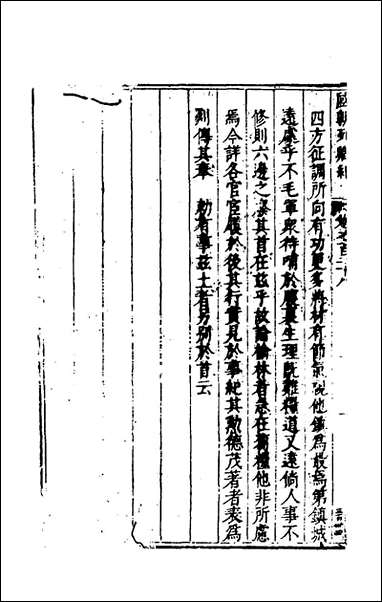 國朝列卿紀
四方征調所向有功更多將材有節氣視他鎮為最為第鎮城
遠處乎不毛軍眾待哺於屯生理既難糧道又遠倘人事不
修則六邊之其首在茲乎故論榆林者急在芻糧他非所慮
焉今詳各官宦履於後其行實見於事紀其勳德茂著者裒為
列傳其奉 勑有事茲土者另列於首云